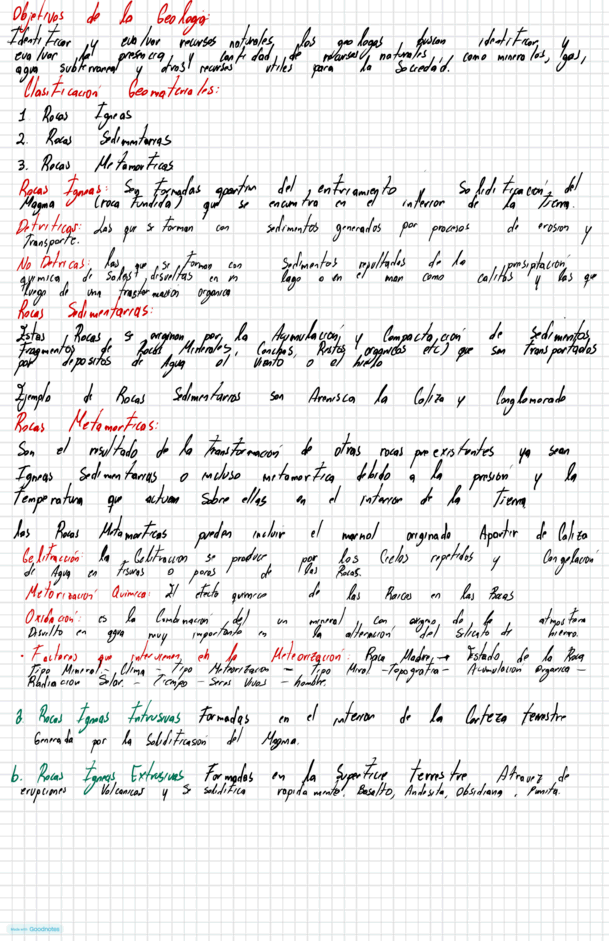 Objetivos de la Geologia:
Identificar y evaluar recursos naturales, los geologos buscan identificar y
evaluar la presencia y cantidad de recursos naturales como minerales, gas,
agua subterranea y otros recursos utiles para la Sociedad.
Clasificación Geomateriales:
1. Rocas Igneas
2. Rocas Sedimentarias
3. Rocas Metamorficas
Rocas Igneas: Son formadas apartir del enfriamiento Solidificación del
Magma (roca fundida) que se encuentra en el interior de la tierra.
Detriticas: Las que se forman con sedimentos generados por procesos de erosion y
Transporte.
No Detricas: las que se forman con Sedimentos resultados de la presipitación
quimica de Sales disueltas en un lago o en el mar como calitos y las que
luego de una trasformación organica
Rocas Sedimentarias:
Estas Rocas se originan por la Acumulación y Compactación de Sedimentos
Fragmentos de Rocas Minerales, Conchas, Restos organicos etc) que son Transportados
por depositos de Agua el viento o el hielo
Ejemplo de Rocas Sedimentarias son Arenisca la Caliza y Conglomerado
Rocas Metamorficas:
Son el resultado de la transformación de otras rocas preexistentes ya sean
Igneas Sedimentarias o incluso metamorfica debido a la presión y la
Temperatura que actuan Sobre ellas en el interior de la Tierra
Las Rocas Metamorficas pueden incluir el marmol originado Apartir de Caliza
Gelitracción la Gelitraccion se produce por los Ciclos repetidos y Congelación
de Agua en fisuras o poros de las Rocas.
Metorización Quimica: El efecto quimico de las Raices en las Rocas
Oxidación: es la Combinación del un mineral con oxigeno de la atmosfera
Disuelto en agua muy importante en la alteración del Silicato de hierro.
• Factores que intervienen en la Meteorización: Roca Madre → Estado de la Roca
Tipo Mineral - Clima - Tipo Metiorizacion - Tipo - Topografia - Acumulacion organica -
Radiacion Solar. - Tiempo - Seres Vivos - hombre.
a. Rocas Igneas Intrusivas Formadas en el interior de la Corteza terrestre
Generada por la Solidificasión del Magma.
b. Rocas Igneas Extrusivas Formadas en la Superficie terrestre Atravez de
erupciones Volcanicas y se solidifica rapidamente. Basalto, Andesita, Obsidiana, Pomita.
Made with Goodnotes